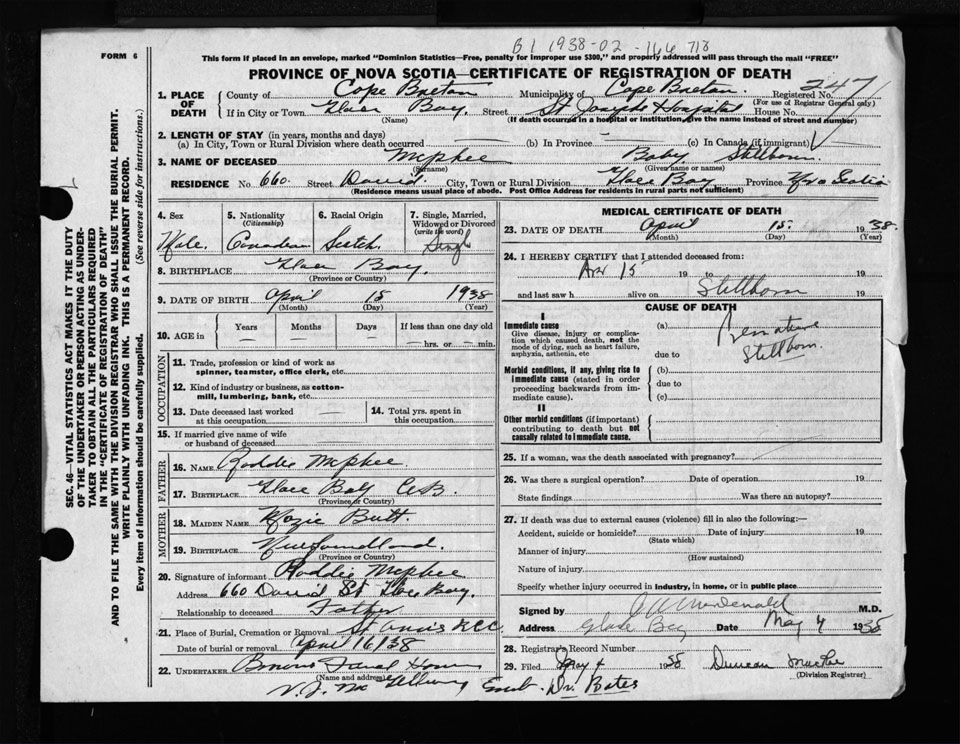 B1 1938-02-166718
FORM 6
This form if placed in an envelope, marked "Dominion Statistics—Free, penalty for improper use $300," and properly addressed will pass through the mail "FREE"
PROVINCE OF NOVA SCOTIA—CERTIFICATE OF REGISTRATION OF DEATH
1. PLACE OF DEATH County of Cape Breton Municipality of Cape Breton Registered No. 347
(For use of Registrar General only)
If in City or Town Glace Bay. Street St Josephs Hospital House No.
(Name) (If death occurred in a hospital or institution, give the name instead of street and number)
2. LENGTH OF STAY (in years, months and days)
(a) In City, Town or Rural Division where death occurred — (b) In Province — (c) In Canada (if immigrant)
3. NAME OF DECEASED McPhee Baby Stillborn.
(Surname) (Given name or names)
RESIDENCE No. 660. Street David. City, Town or Rural Division Glace Bay Province Nova Scotia
(Residence means usual place of abode. Post Office Address for residents in rural parts not sufficient)
4. Sex Male.
5. Nationality (Citizenship) Canadian
6. Racial Origin Scotch.
7. Single, Married, Widowed or Divorced (write the word) Singl
8. BIRTHPLACE Glace Bay.
(Province or Country)
9. DATE OF BIRTH April 15 1938
(Month) (Day) (Year)
10. AGE in Years Months Days If less than one day old
— — — — hrs. or — min.
OCCUPATION
11. Trade, profession or kind of work as spinner, teamster, office clerk, etc.
12. Kind of industry or business, as cotton-mill, lumbering, bank, etc.
13. Date deceased last worked at this occupation —
14. Total yrs. spent in this occupation
15. If married give name of wife or husband of deceased
FATHER
16. NAME Roddie McPhee.
17. BIRTHPLACE Glace Bay C.B.
(Province or Country)
MOTHER
18. MAIDEN NAME Mazie Butt.
19. BIRTHPLACE Newfoundland.
(Province or Country)
20. Signature of informant Roddie McPhee
Address 660 David St Glace Bay.
Relationship to deceased Father
21. Place of Burial, Cremation or Removal St Ann's R.C.C.
Date of burial or removal April 16/38
22. UNDERTAKER Home
(Name and address)
Emb. Dr. Bates
MEDICAL CERTIFICATE OF DEATH
23. DATE OF DEATH April 15. 19 38.
(Month) (Day) (Year)
24. I HEREBY CERTIFY that I attended deceased from:
Apr 15 19 to 19
and last saw h alive on Stillborn 19
CAUSE OF DEATH
I
Immediate cause
Give disease, injury or complication which caused death, not the mode of dying, such as heart failure, asphyxia, asthenia, etc
(a) Premature
Stillborn.
due to
Morbid conditions, if any, giving rise to immediate cause (stated in order proceeding backwards from immediate cause).
(b)
due to
(c)
II
Other morbid conditions (if important) contributing to death but not causally related to immediate cause.
25. If a woman, was the death associated with pregnancy?
26. Was there a surgical operation? Date of operation 19
State findings Was there an autopsy?
27. If death was due to external causes (violence) fill in also the following:—
Accident, suicide or homicide? Date of injury 19
(State which)
Manner of injury
(How sustained)
Nature of injury
Specify whether injury occurred in industry, in home, or in public place
Signed by MacDonald M.D.
Address Glace Bay Date May 4 1938
28. Registrar's Record Number
29. Filed May 4 1938 Duncan MacRae
(Division Registrar)
SEC. 46—VITAL STATISTICS ACT MAKES IT THE DUTY
OF THE UNDERTAKER OR PERSON ACTING AS UNDER-
TAKER TO OBTAIN ALL THE PARTICULARS REQUIRED
IN THE "CERTIFICATE OF REGISTRATION OF DEATH"
AND TO FILE THE SAME WITH THE DIVISION REGISTRAR WHO SHALL ISSUE THE BURIAL PERMIT.
WRITE PLAINLY WITH UNFADING INK. THIS IS A PERMANENT RECORD.
Every item of information should be carefully supplied. (See reverse side for instructions.)